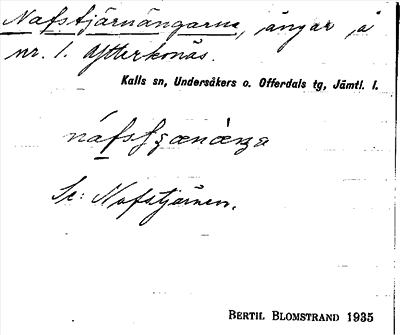 Nafstjärnängarna, ängar å
nr. 1. Ytterkonäs.
Kalls sn, Undersåkers o. Offerdals tg, Jämtl. l.
Se: Nafstjärnen.
BERTIL BLOMSTRAND 1935